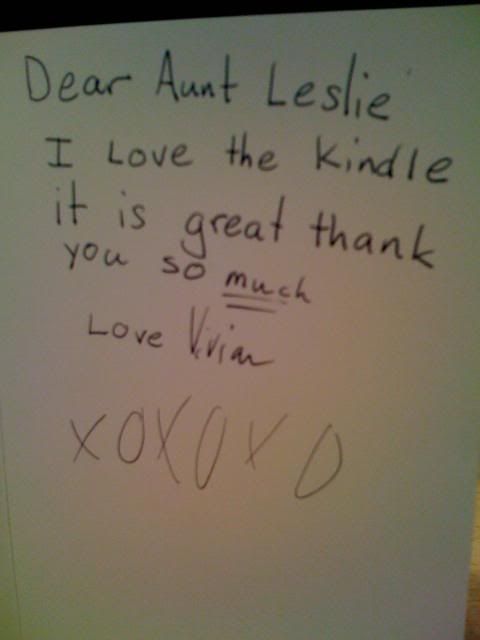 Dear Aunt Leslie
I Love the Kindle
it is great thank
you so much
Love Vivian
XOXOXO